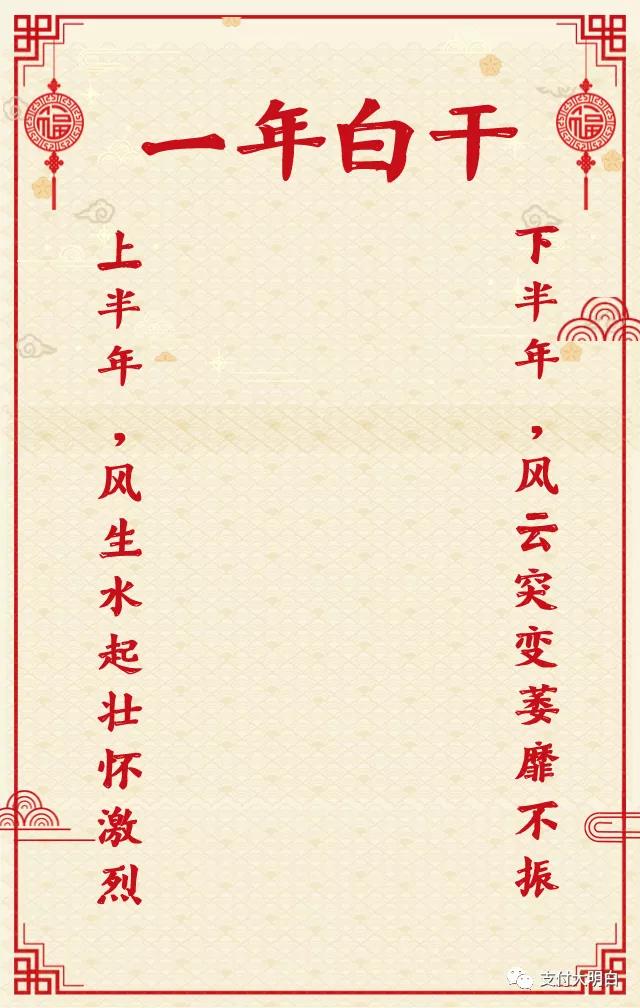 一年白干
上半年，风生水起壮怀激烈
下半年，风云突变萎靡不振
福
福
支付大明白